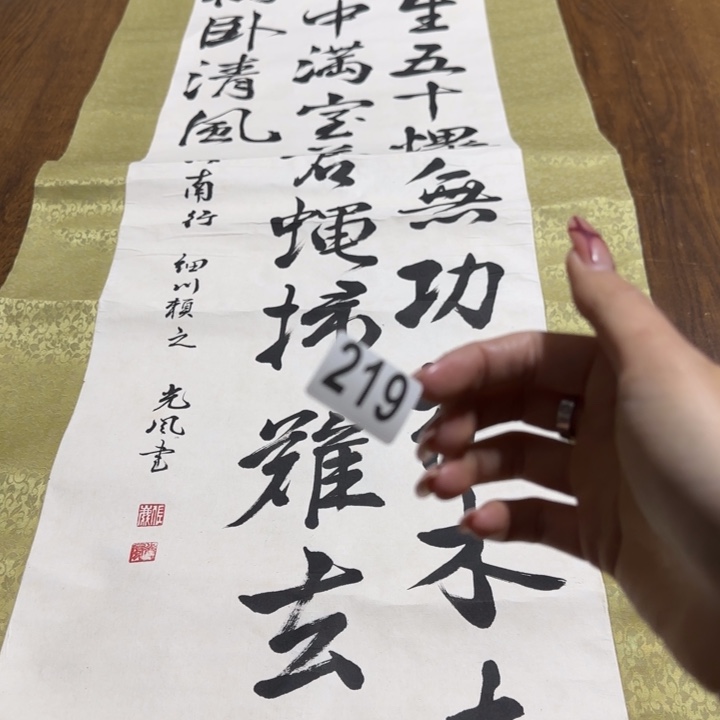 生五十
無功
木
中満室蒼蠅掃難去
卧清風
南行 細川頼之 光風書
219